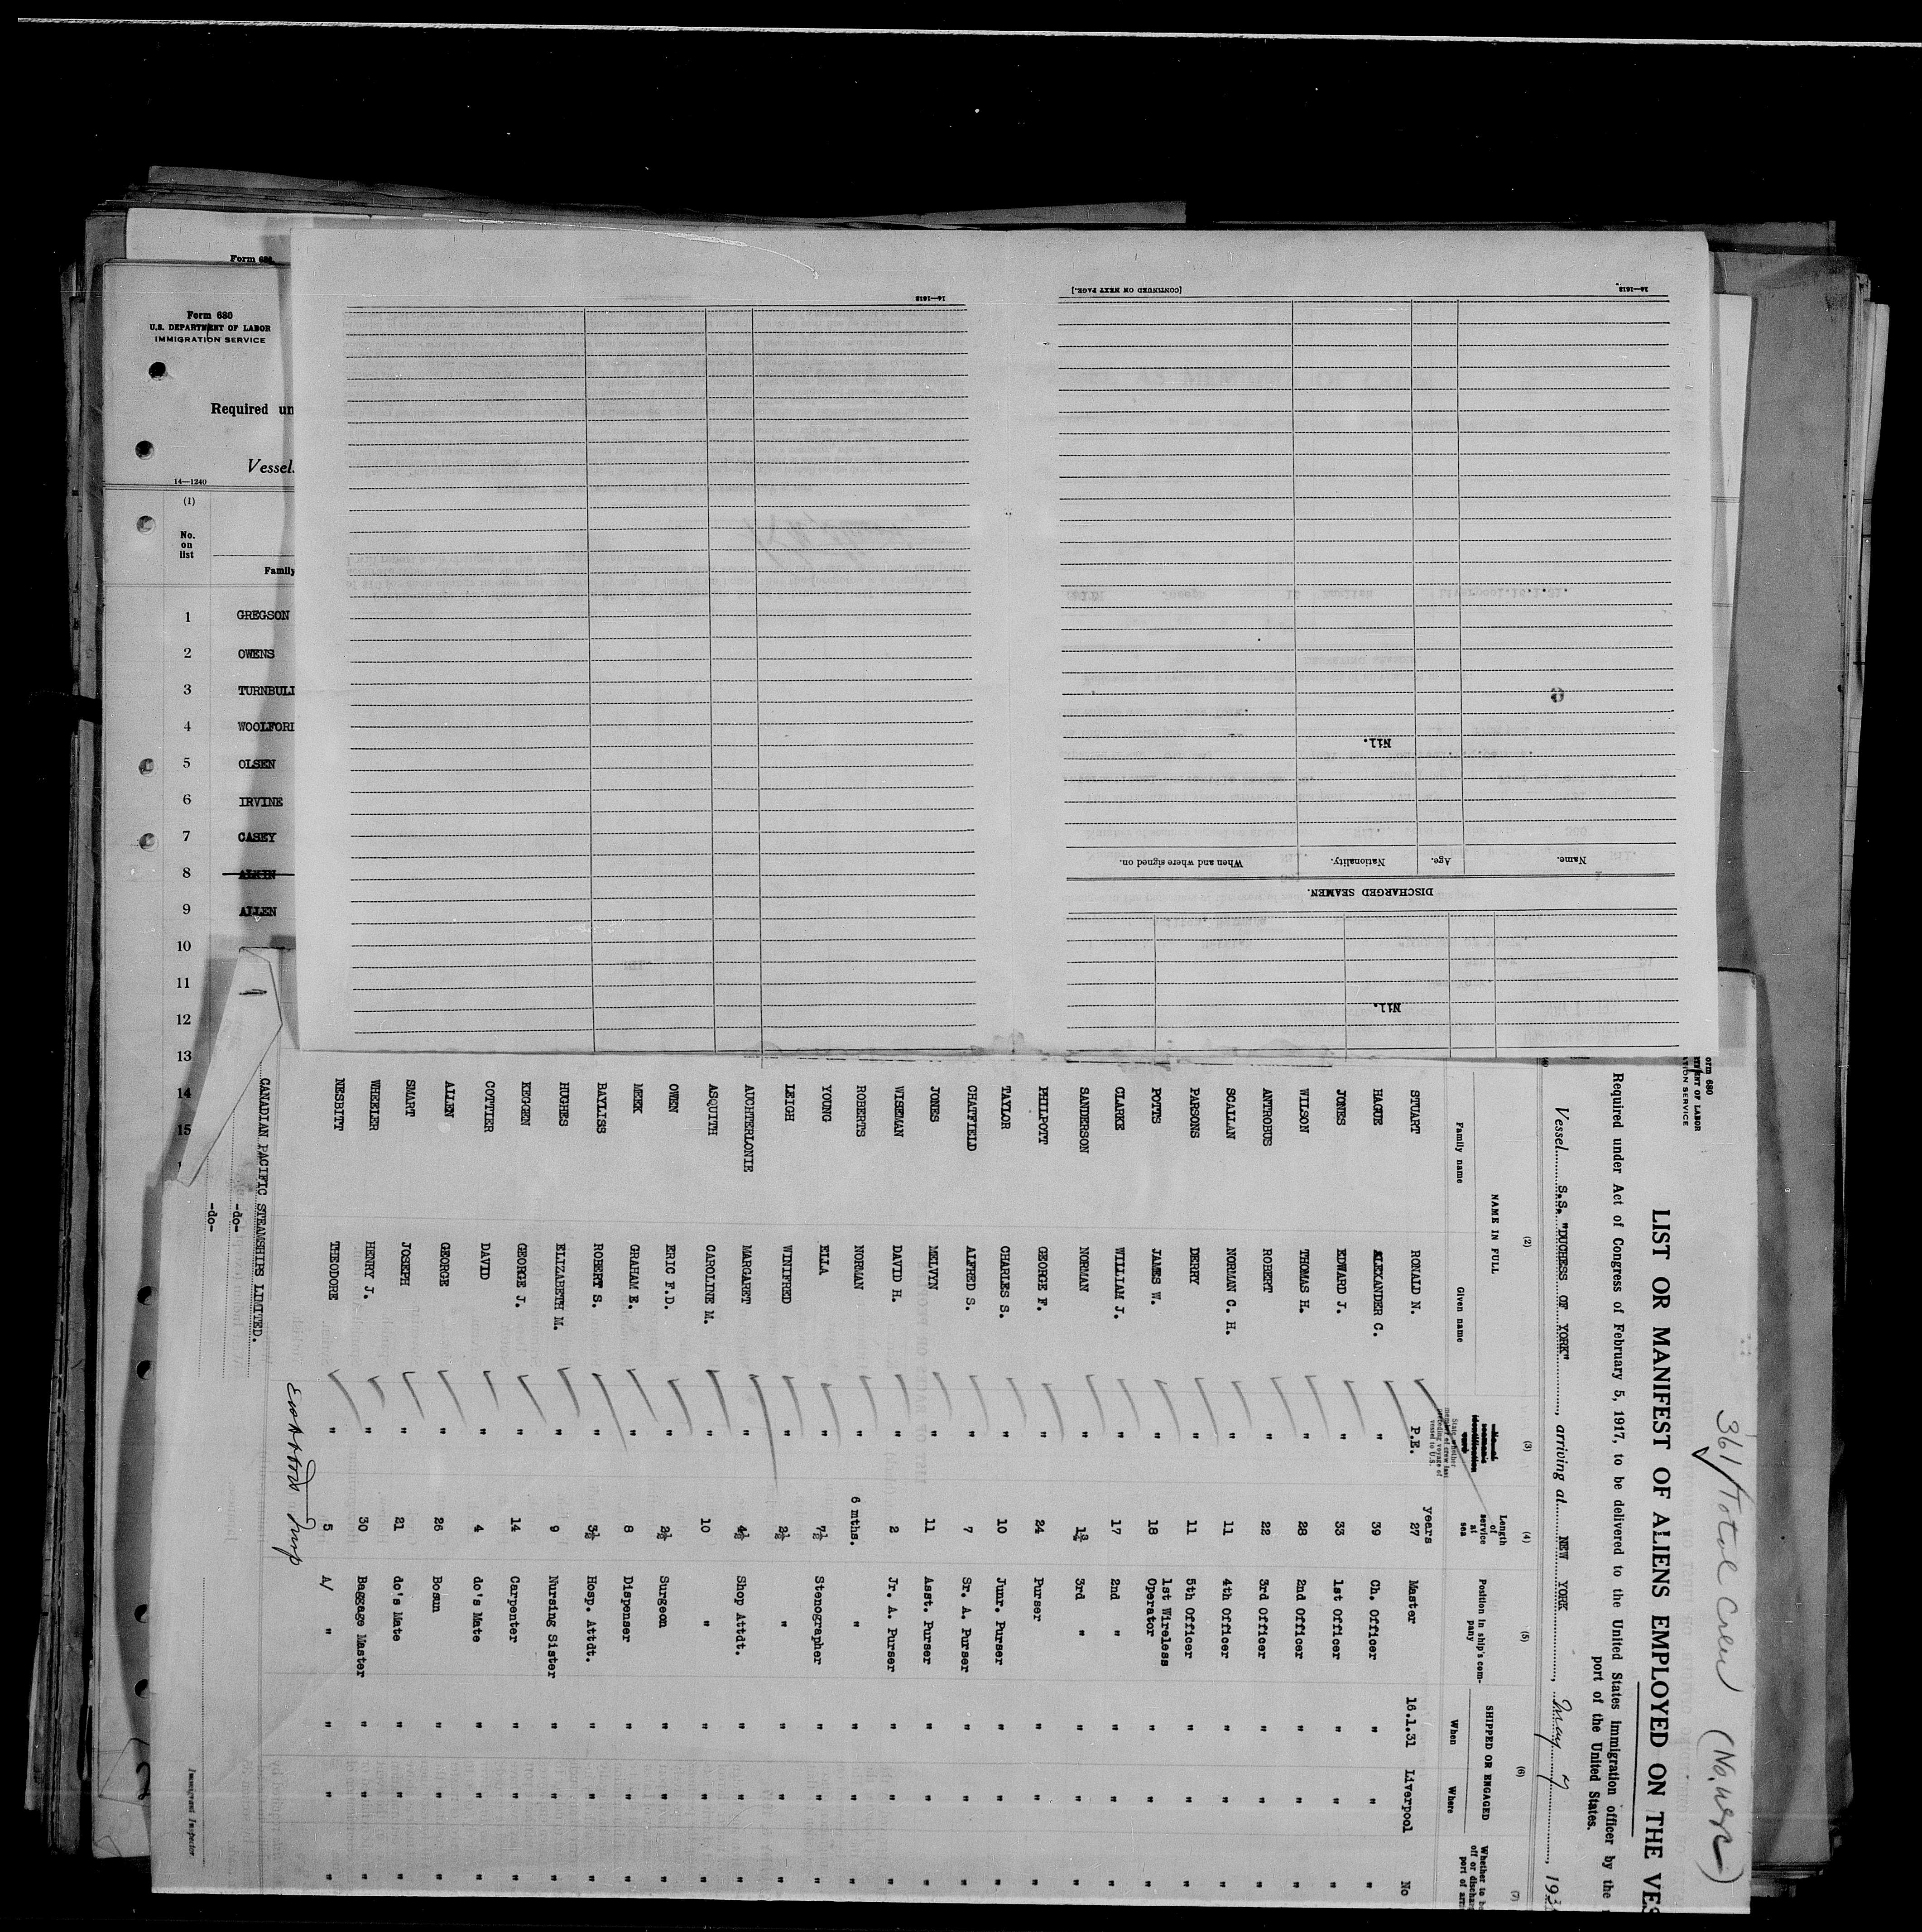 Form 680
Form 680
U.S. DEPARTMENT OF LABOR
IMMIGRATION SERVICE
Required un
Vessel
14—1240
(1)
No. on list
Family
1 GREGSON
2 OWENS
3 TURNBULL
4 WOOLFORD
5 OLSEN
6 IRVINE
7 CASEY
8 ALKIN
9 ALLEN
10
11
12
13
14
15
14—1613
[CONTINUED ON NEXT PAGE.]
14—1613
Nil.
Name. Age. Nationality. When and where signed on.
DISCHARGED SEAMEN.
Nil.
361/Total Crew (No.
orm 680
TMENT OF LABOR
ATION SERVICE
LIST OR MANIFEST OF ALIENS EMPLOYED ON THE VES
Required under Act of Congress of February 5, 1917, to be delivered to the United States immigration officer by the
port of the United States.
Vessel S.S. "DUCHESS OF YORK", arriving at NEW YORK, May 7, 193
(2) (3) (4) (5) (6) (7)
NAME IN FULL
Family name Given name
State whether member of crew last preceding voyage of vessel to U.S.
Length of service at sea
Position in ship's company
SHIPPED OR ENGAGED
When Where
Whether to b
off or discha
port of arr
years
STUART RONALD N. P.E. 27 Master 16.1.31 Liverpool No
HAGUE ALEXANDER C. " 39 Ch. Officer " " "
JONES EDWARD J. " 33 1st Officer " " "
WILSON THOMAS H. " 28 2nd Officer " " "
ANTROBUS ROBERT " 22 3rd Officer " " "
SCALLAN NORMAN C. H. " 11 4th Officer " " "
PARSONS DERRY " 11 5th Officer " " "
POTTS JAMES W. " 18 1st Wireless Operator " " "
CLARKE WILLIAM J. " 17 2nd " " " "
SANDERSON NORMAN " 1¾ 3rd " " " "
PHILPOTT GEORGE F. " 24 Purser " " "
TAYLOR CHARLES S. " 10 Junr. Purser " " "
CHATFIELD ALFRED S. " 7 Sr. A. Purser " " "
JONES MELVYN " 11 Asst. Purser " " "
WISEMAN DAVID H. " 2 Jr. A. Purser " " "
ROBERTS NORMAN " 6 mths. " " " "
YOUNG ELLA " 7½ Stenographer " " "
LEIGH WINIFRED " 2½ " " " "
AUCHTERLONIE MARGARET " 4½ Shop Attdt. " " "
ASQUITH CAROLINE M. " 10 " " " "
OWEN ERIC F.D. " 2½ Surgeon " " "
MEEK GRAHAM E. " 8 Dispenser " " "
BAYLISS ROBERT S. " 3½ Hosp. Attdt. " " "
HUGHES ELIZABETH M. " 9 Nursing Sister " " "
KEGGEN GEORGE J. " 14 Carpenter " " "
COTTIER DAVID " 4 do's Mate " " "
ALLEN GEORGE " 26 Bosun " " "
SMART JOSEPH " 21 do's Mate " " "
WHEELER HENRY J. " 30 Baggage Master " " "
NESBITT THEODORE " 5 A/ " " " "
CANADIAN PACIFIC STEAMSHIPS LIMITED.
-do-
-do-
Immigrant Inspector